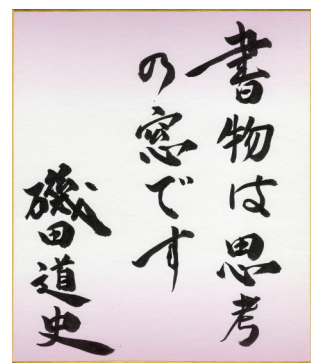 書物は思考
の窓です
磯田道史